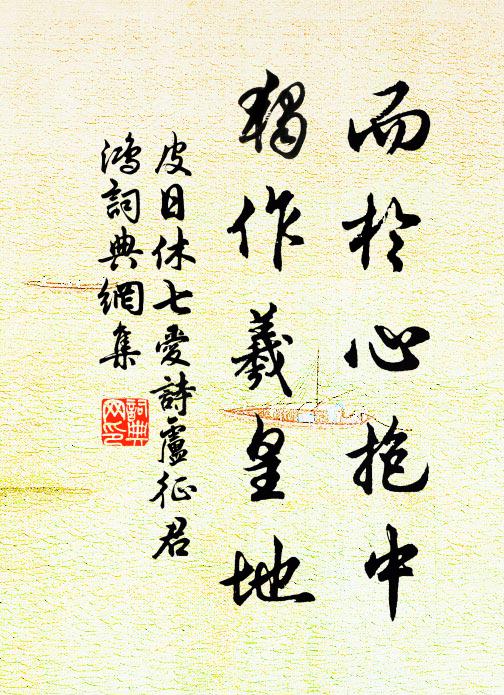 而於心抱中
獨作羲皇地
皮日休七愛詩盧征君
鴻詞典網集
詞典
网印